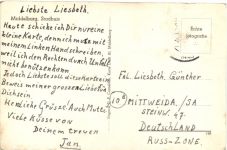 Liebste Liesbeth.
Middelburg, Stadhuis
Heute schicke ich Dir nur eine
kleine Karte, denn ich muss mit
meinem linken Hand schreiben,
weil ich den Rechten durch Unfall
nicht benützen kann.
Jedoch Liebste soll dieses Karte ein
Beweis meiner grossen Liebe für
Dich sein.
Herzliche Grüsse Auch Mutter
Viele Küsse von
Deinem treuen
Jan.
Echte
Fotografie
Frl. Liesbeth. Günther
MITTWEIDA /SA
STEINW. 47
DEUTSCHLAND
RUSS-ZONE.